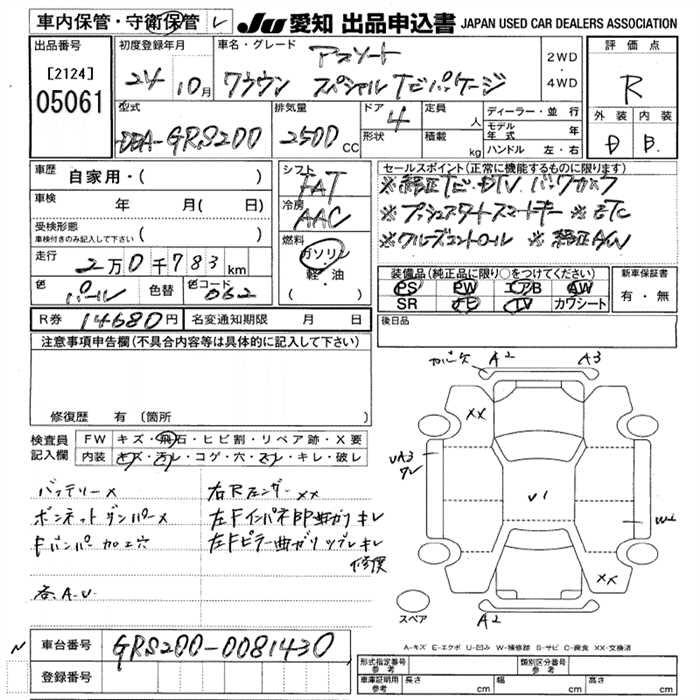 車内保管・守衛保管 レ
JU 愛知 出品申込書 JAPAN USED CAR DEALERS ASSOCIATION
出品番号
[2124]
05061
初度登録年月
24 10月
車名・グレード
アスリート
クラウン スペシャル
2WD
・
4WD
評価点
R
外装 内装
D B
型式
DBA-GRS200
排気量
2500 cc
ドア
4
形状
定員
人
積載
kg
ディーラー・並行
モデル年式 年
ハンドル 左・右
車歴
自家用・( )
車検
年 月( 日)
受検形態
車検付きのみ記入して下さい ( )
走行
2万0千783km
色
パール
色替
色コード
062
シフト
FAT
冷房
AAC
燃料
ガソリン
軽・油
セールスポイント(正常に機能するものに限ります)
※純正TV・DTV バックカメラ
※プッシュスタートスマートキー ※ETC
※クルーズコントロール ※純正A/W
装備品(純正品に限り○をつけてください)
PS PW エアB AW
SR TV カワシート
新車保証書
有・無
R券 14680円 名変通知期限 月 日
後日品
注意事項申告欄(不具合内容等は具体的に記入して下さい)
修復歴 有(箇所
検査員記入欄
FW キズ・飛石・ヒビ割・リペア跡・X要
内装 キズ・汚レ・コゲ・穴・スレ・キレ・破レ
バッテリーX
ボンネットダンパーX
Fバンパー加工穴
各A.U
右Rフェンダー XX
左Fインパネ部曲がりキレ
左Fピラー曲ガリ キレ
修復
A2
A3
XX
UA3
V1
W2
XX
A2
スペア
A-キズ E-エクボ U-凹み W-補修跡 S-サビ C-腐食 XX-交換済
N
車台番号
GRS200-0081430
登録番号
形式指定番号
参考
類別区分番号
参考
車庫証明用
参考
長さ cm
幅 cm
高さ cm